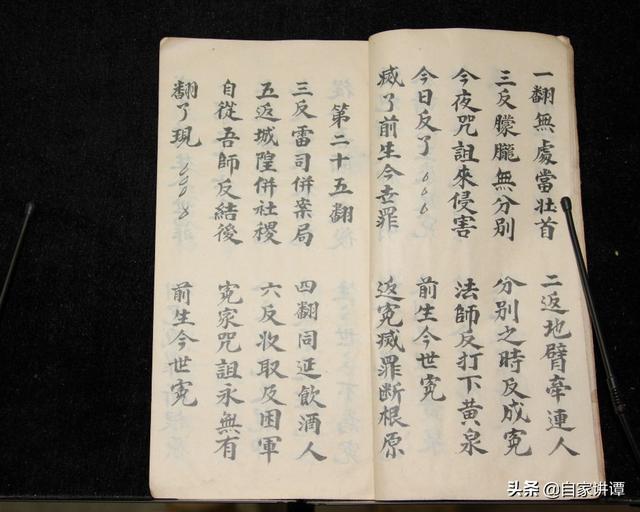 一翻無處當壯首 二返地臂牽連人
三反朦朧無分別 分別之時反成冤
今夜咒詛來侵害 法師反打下黃泉
今日反了 前生今世冤
滅了前生今世罪 返冤滅罪断根原
第二十五翻
三反雷司併案局 四翻同延飲酒人
五返城隍併社稷 六反收取及困軍
自從吾師反結後 冤家咒詛永無有
翻了現 前生今世冤
头条 @自家讲谭